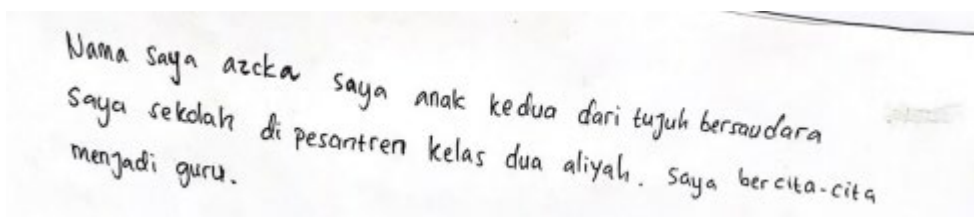 Nama saya azcka saya anak kedua dari tujuh bersaudara
Saya sekolah di pesantren kelas dua aliyah. Saya bercita-cita
menjadi guru.